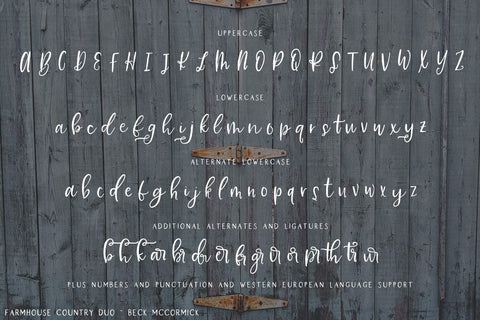 UPPERCASE
A B C D E F H I J K L M N O P Q R S T U V W X Y Z
LOWERCASE
a b c d e f g h i j k l m n o p q r s t u v w x y z
ALTERNATE LOWERCASE
a b c d e f g h i j k l m n o p q r s t u v w x y z
ADDITIONAL ALTERNATES AND LIGATURES
PLUS NUMBERS AND PUNCTUATION AND WESTERN EUROPEAN LANGUAGE SUPPORT
FARMHOUSE COUNTRY DUO ~ BECK MCCORMICK